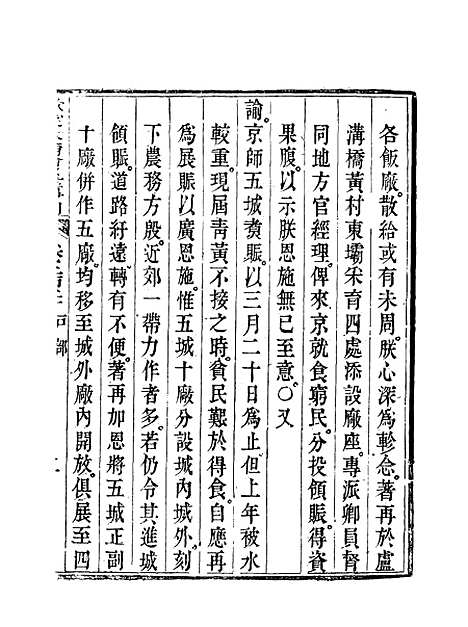 各飯廠。散給或有未周。朕心深爲軫念。著再於盧
溝橋黃村東壩采育四處添設廠座。專派卿員督
同地方官經理。俾來京就食窮民。分投領賑。得資
果腹。以示朕恩施無已至意。○又
諭。京師五城煑賑。以三月二十日爲止但上年被水
較重。現屆青黃不接之時。貧民艱於得食。自應再
爲展賑以廣恩施。惟五城十廠分設城內城外。刻
下農務方殷。近郊一帶力作者多。若仍令其進城
領賑。道路紆遠轉有不便。著再加恩將五城正副
十廠併作五廠。均移至城外廠內開放。俱展至四
戶部